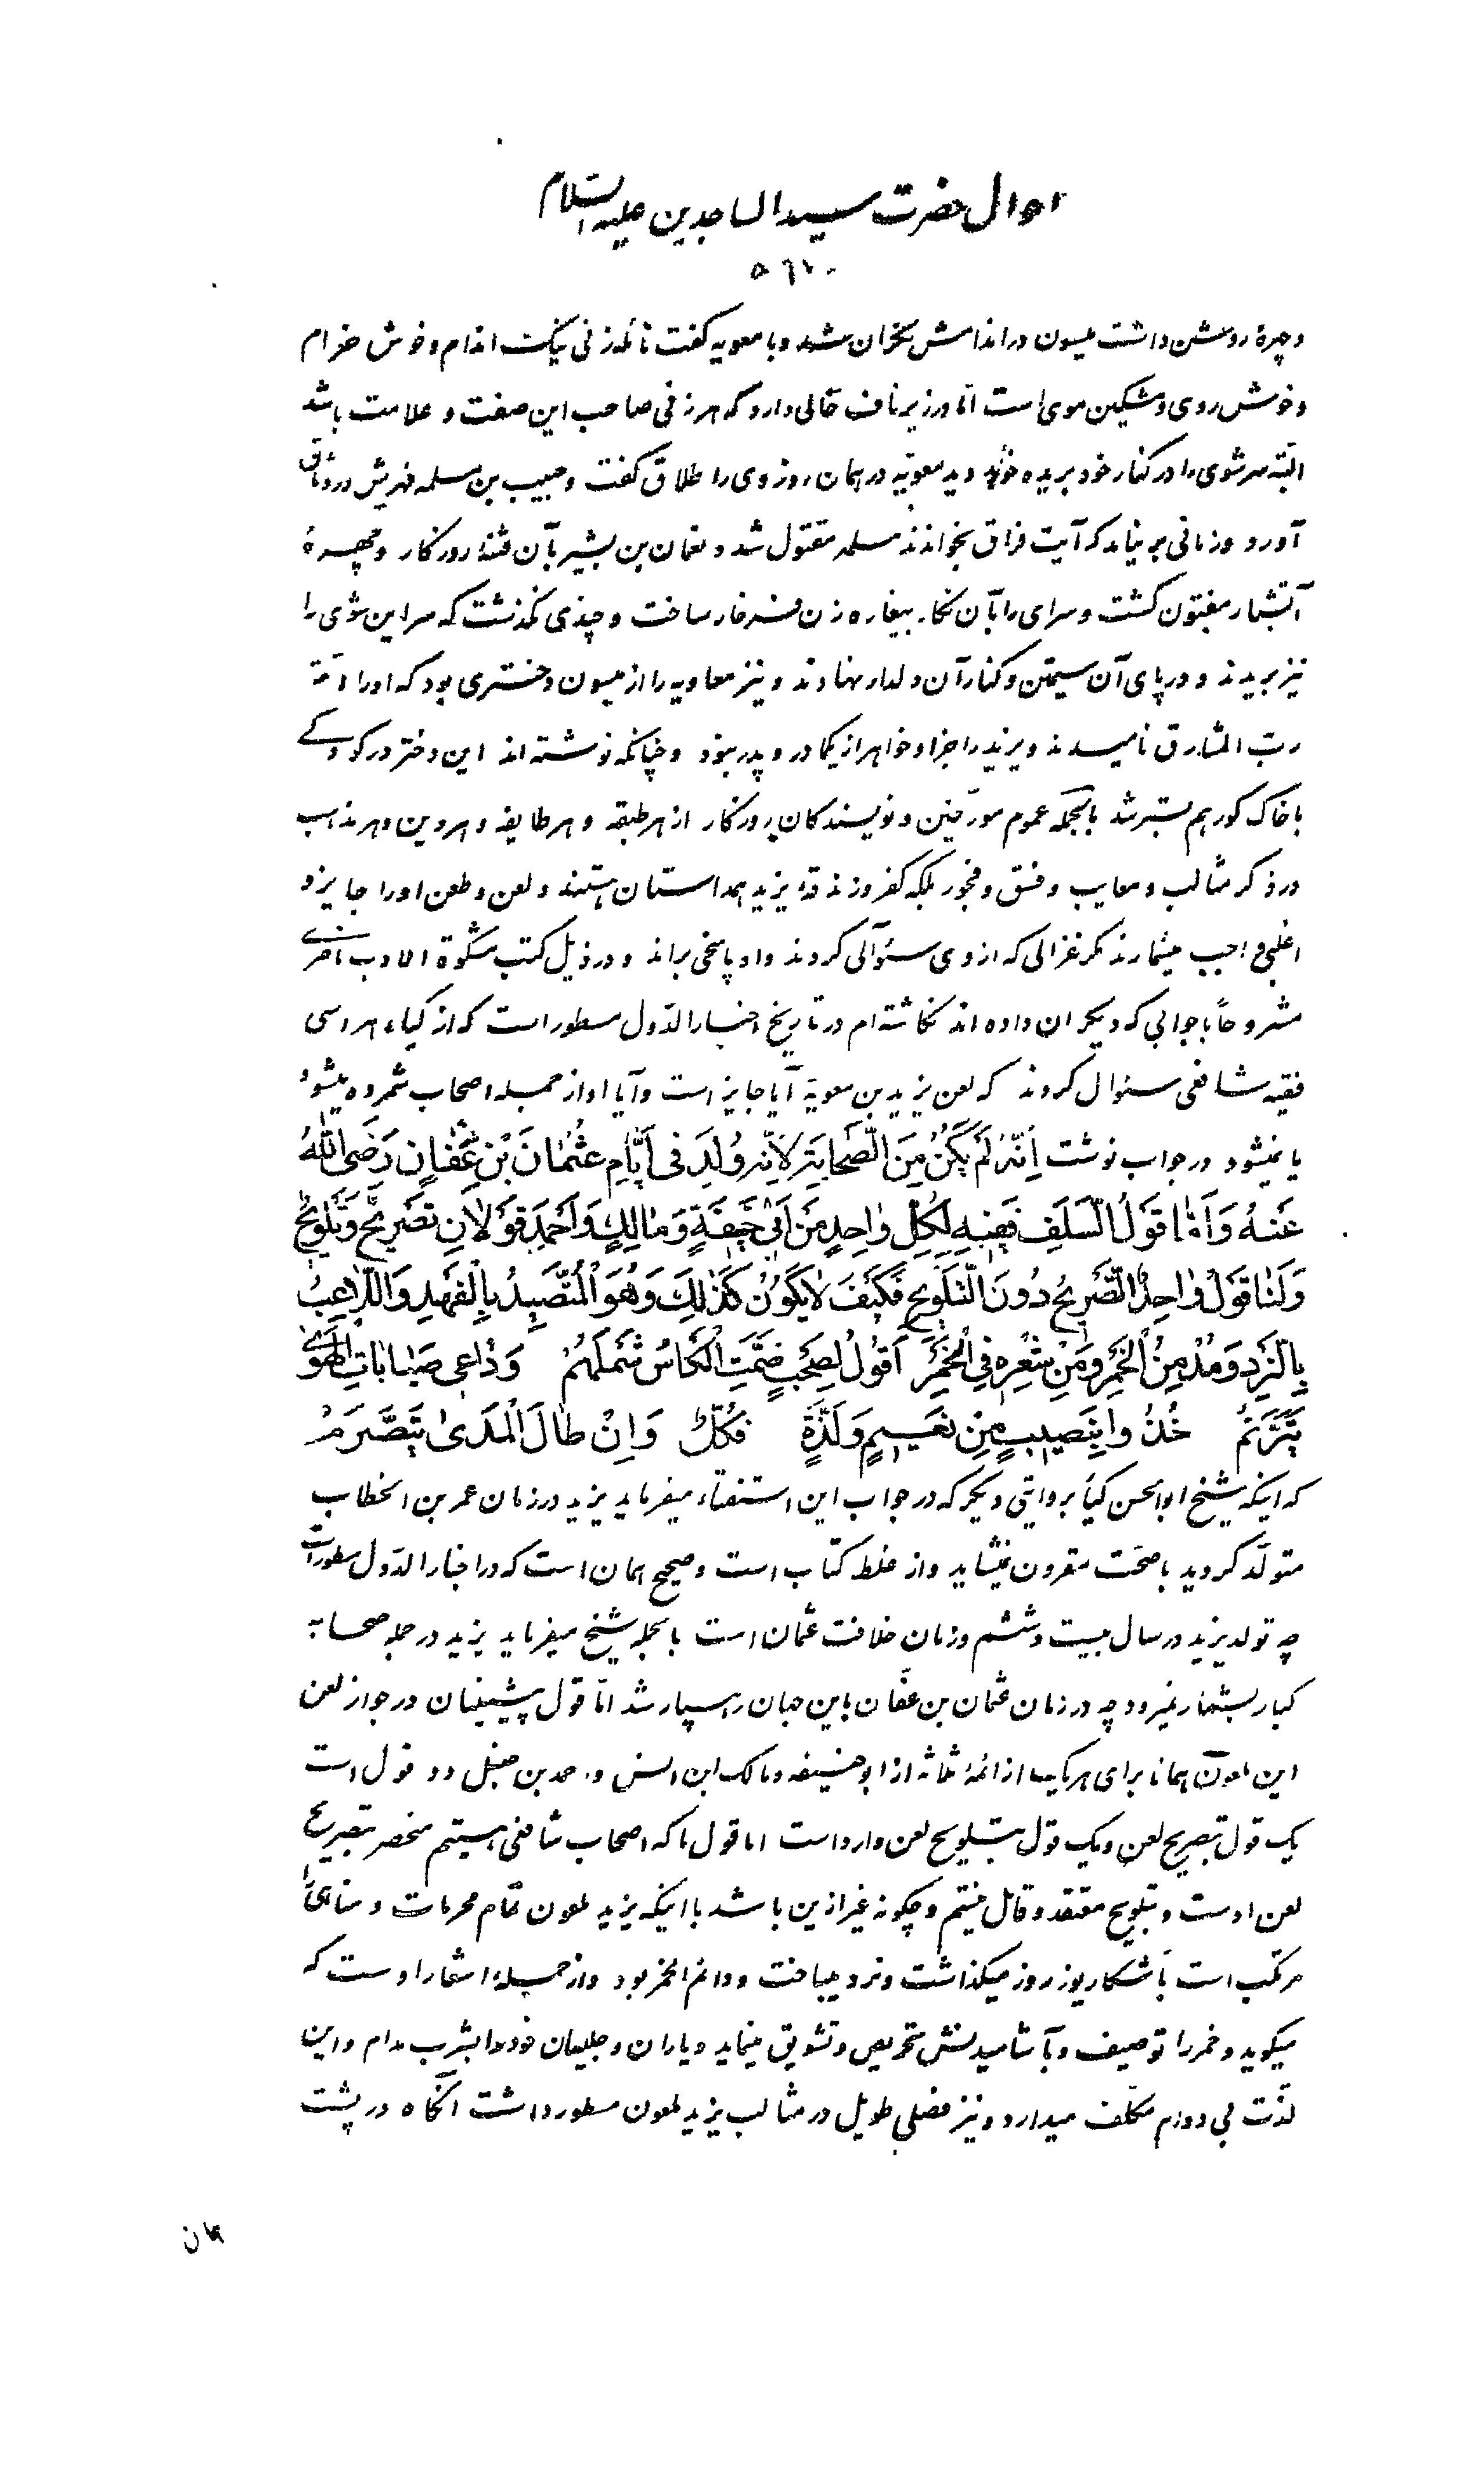 احوال حضرت سید الساجدین علیه السلام
وچهرهٔ روشن داشت میسون در اندامش نگران شد و با معویه گفت نائله زنی نیکت اندام و خوش خرام
و خوش روی و مشکین موی است امّا در زیر ناف خالی دارد که هر زنی صاحب این صفت و علامت باشد
البتّه سر شوی را در کنار خود بریده خواهد دید معویّه در همان روز وی را طلاق گفت و حبیب بن مسلمه فهریش در وثاق
آورد و زمانی بر نیامد که آیت فراق بخواندند مسلمه مقتول شد و نعمان بن بشیر بآن فتنهٔ روزکار و چهرهٔ
آتشبار مفتون کشت و سرای را بآن نکار بیغاره زن فرخار ساخت و چندی نکذشت که سر این شوی را
نیز بریدند و در پای آن سیمتن و کنار آن دلدار نهادند و نیز معاویه را از میسون دختری بود که او را امة
ربّ المشارق نامیدند و یزید را جز او خواهر از یکمادر و پدر نبود و چنانکه نوشته اند این دختر در کودکے
با خاک کور هم بستر شد بالجمله عموم مورّخین و نویسندکان روزکار از هر طبقه و هر طایفه و هر دین و هر مذهب
در ذکر مثالب و معایب و فسق و فجور بلکه کفر و زندقهٔ یزید همداستان هستند و لعن و طعن او را جایز و
اغلبی واجب میشمارند مکر غزالی که از وی سئوآلی کردند و او پاسخی براند و در ذیل کتب مشکوة الادب ناصرے
مشروحاً با جوابی که دیکران داده اند نکاشته ام در تاریخ اخبار الدّول مسطور است که از کیاء هراسی
فقیه شافعی سئوال کردند که لعن یزید بن معویة آیا جایز است و آیا او از جمله اصحاب شمرده میشود
یا نمیشود در جواب نوشت اِنَّهُ لَمْ یَکُنْ مِنَ الصَّحابَةِ لِاَنَّهُ وُلِدَ فی اَیّامِ عُثْمانَ بْنِ عَفّانٍ رَضِیَ اللّهُ
عَنهُ وَاَمّا قَولُ السَّلَفِ فَفِیهِ لِکُلِّ واحِدٍ مِنْ اَبی حَنیفَةٍ وَمالِکٍ وَاَحْمَدِ قَوْلانِ تَصْریحٌ وَتَلْویحٌ
وَلَنا قَوْلٌ واحِدٌ التَّصْریحُ دُونَ التَّلْویحِ فَکَیْفَ لایَکُونُ کَذٰلِکَ وَهُوَ الْمُتَصَیِّدُ بِالْفَهِدِ وَاللّاعِبُ
بِالنَّرْدِ وَمُدْمِنُ الْخَمْرِ وَمِنْ شِعْرِهِ فِی الْخَمْرِ اَقُولُ لِصَحْبٍ ضَمَّتِ الْکَاْسُ شَمْلَهُمْ وَداعی صَباباتِ الْهَوٰی
یَتَرَنَّمُ خُذُوا بِنَصیبٍ مِنْ نَعیمٍ وَلَذَّةٍ فَکُلٌّ وَاِنْ طالَ الْمَدیٰ یَتَصَرَّمُ
که اینکه شیخ ابو الحسن کیأ بروایتی دیکر که در جواب این استفتاء میفرماید یزید در زمان عمر بن الخطاب
متولّد کردید با صحّت مقرون نیشاید و از غلط کتّاب است و صحیح همان است که در اخبار الدّول مسطور است
چه تولد یزید در سال بیست و ششم و زمان خلافت عثمان است بالجمله شیخ میفرماید یزید در جمله صحابه
کبار بشمار نمیرود چه در زمان عثمان بن عفّان باین جهان رهسپار شد امّا قول پیشینیان در جواز لعن
این ملعون همانا برای هریک از ائمهٔ ثلاثه از ابو حنیفه و مالک ابن انس و احمد بن حنبل دو قول است
یک قول بتصریح لعن و یک قول بتلویح لعن وارد است اما قول ما که اصحاب شافعی هستیم منحصر بتصریح
لعن اوست و بتلویح معتقد و قائل نیستم و چکونه غیر از این باشد با اینکه یزید ملعون تمام محرمات و مناهی را
مرتکب است با شکار یوز روز میکذاشت و نرد میباخت و دائم الخمر بود و از جملهٔ اشعار اوست که
میکوید و خمر را توصیف و بآشامیدنش تحریص و تشویق مینماید و یاران و جلیسان خود را بشرب مدام و این
لذّت بی دوام مکلّف میدارد و نیز فصلی طویل در مثالب یزید ملعون مسطور داشت آنکاه در پشت
همان